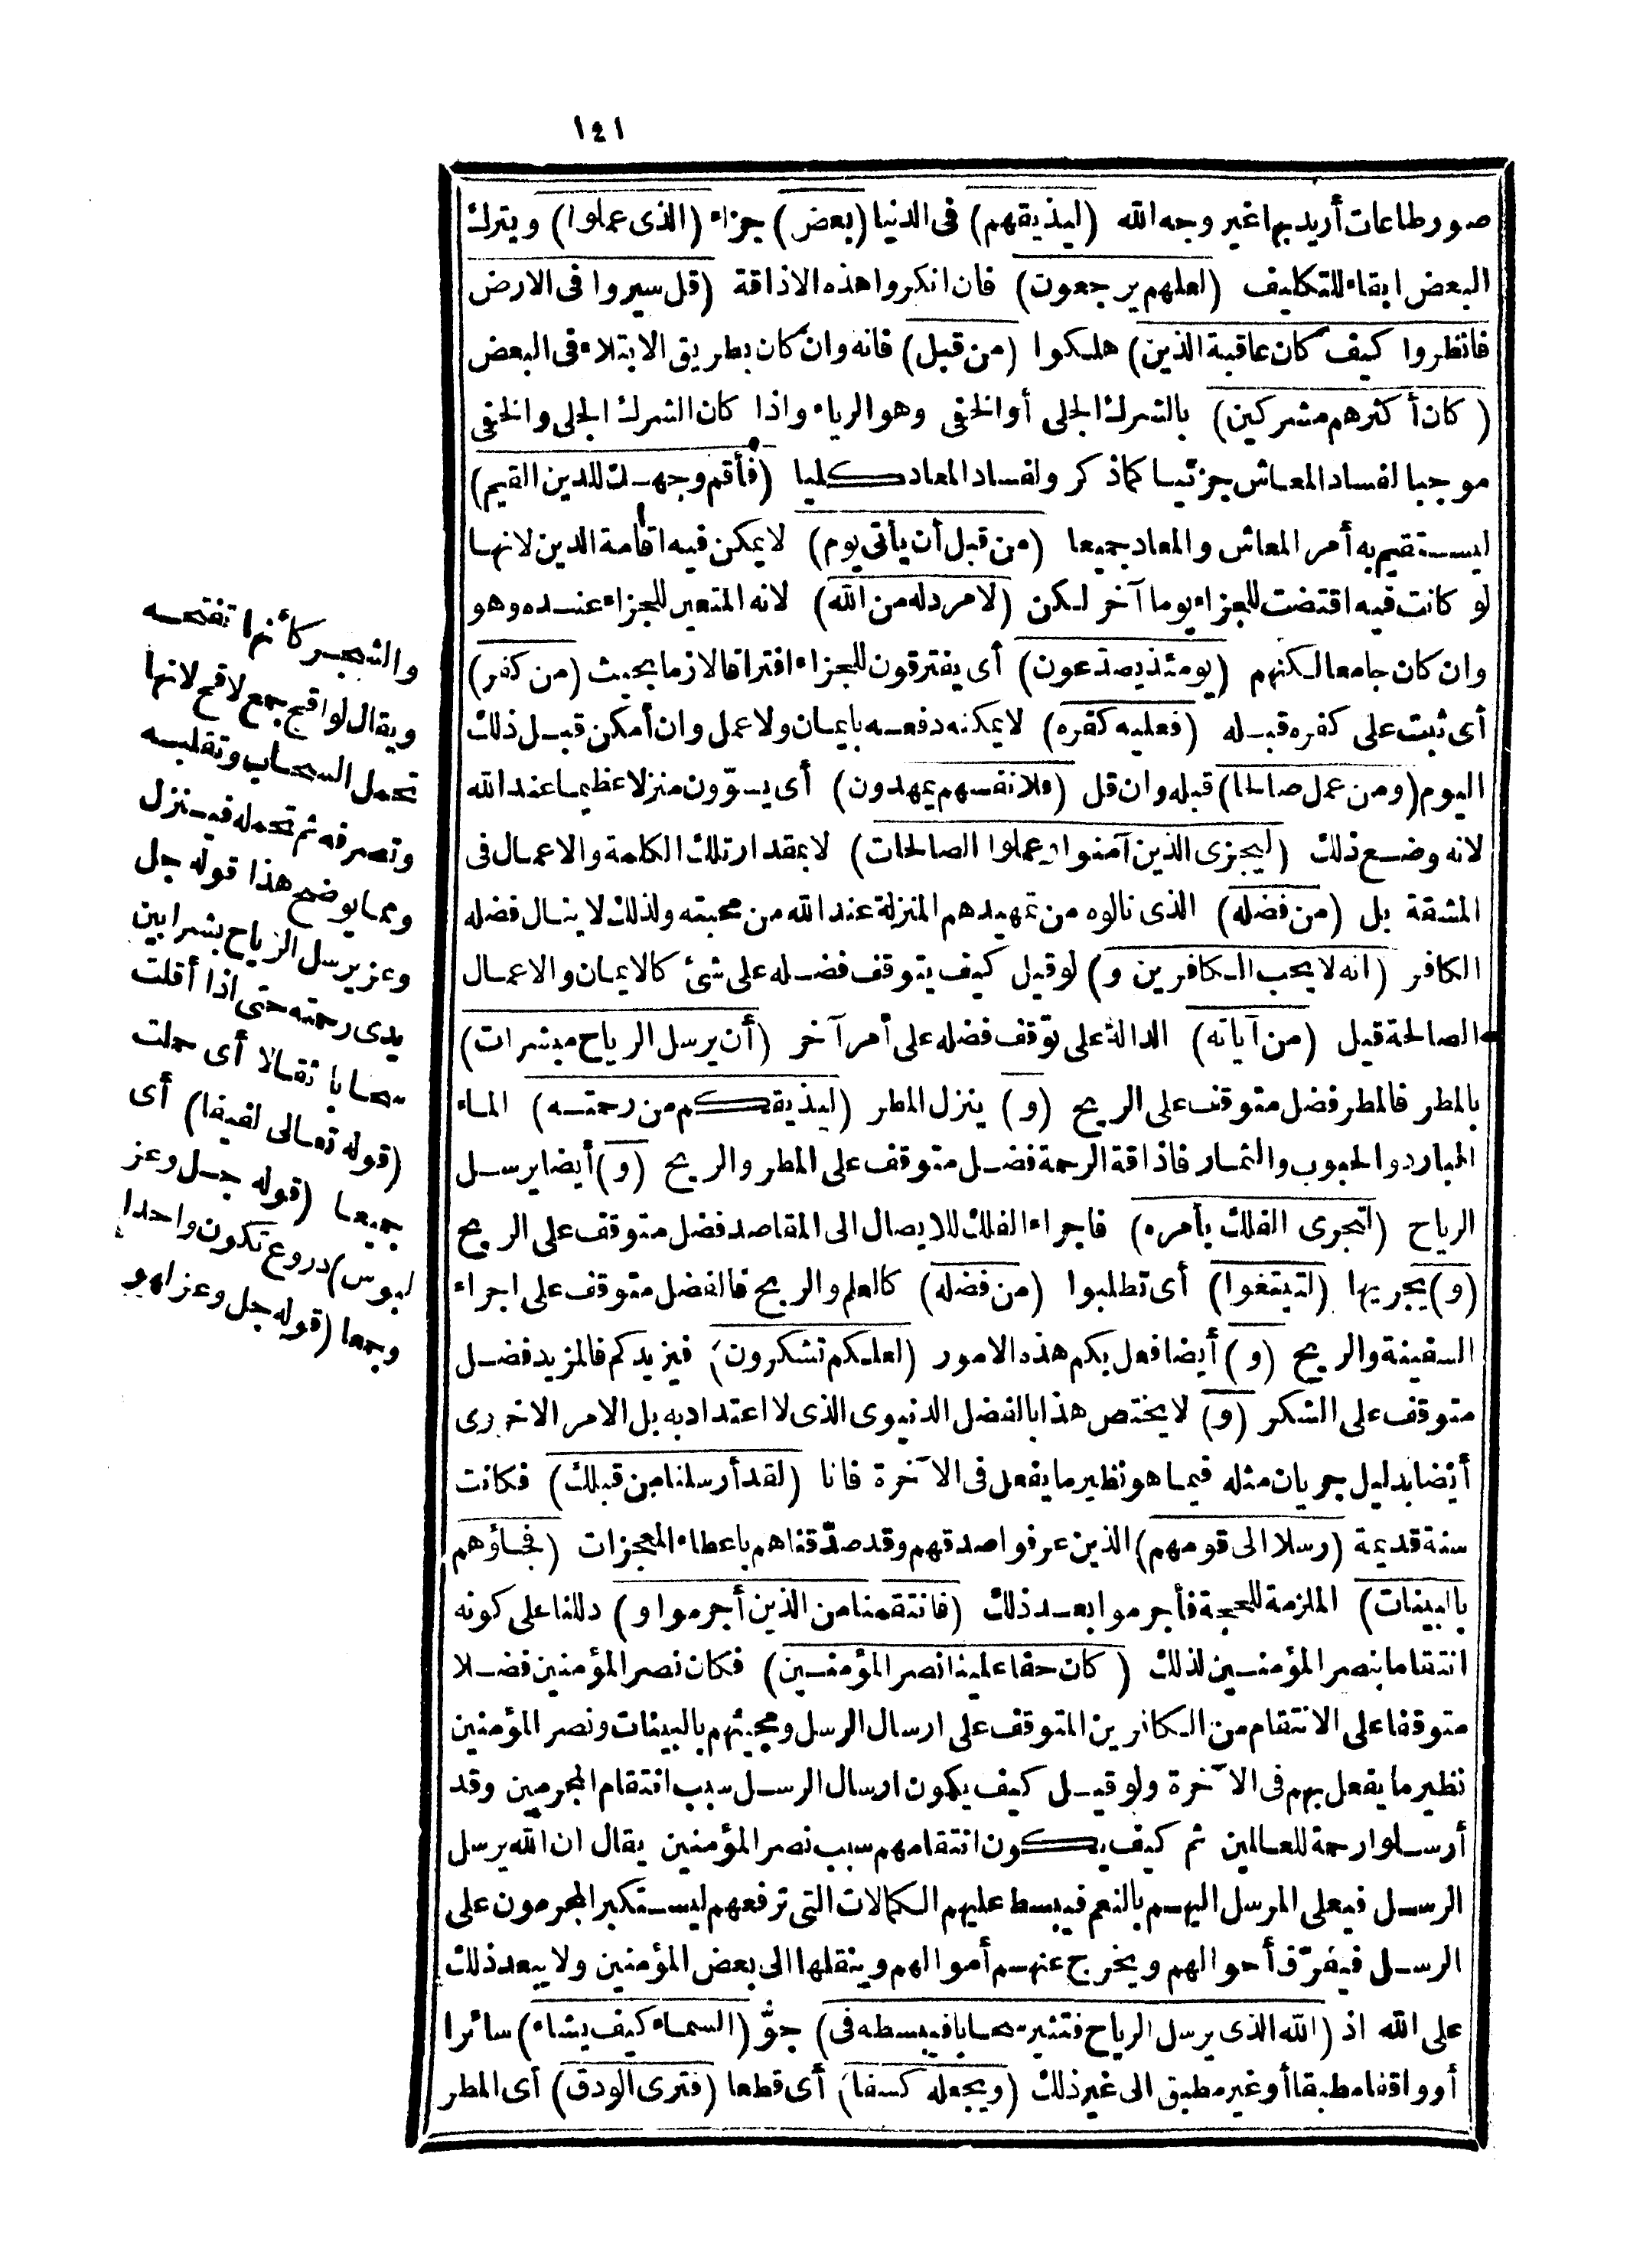 ١٤١
صور طاعات أريد بها غير وجه الله (ليذيقهم) فى الدنيا (بعض) جزاء (الذى عملوا) ويترك
البعض ابقاء للتكليف (لعلهم يرجعون) فان انكروا هذه الاذاقة (قل سيروا فى الارض
فانظروا كيف كان عاقبة الذين) هلكوا (من قبل) فانه وان كان بطريق الابتلاء فى البعض
(كان أكثرهم مشركين) بالشرك الجلى أو الخفى وهو الرياء واذا كان الشرك الجلى والخفى
موجبا لفساد المعاش جزئيا كما ذكر ولفساد المعاد كليا (فأقم وجهك للدين القيم)
ليستقيم به أمر المعاش والمعاد جميعا (من قبل أن يأتى يوم) لا يمكن فيه اقامة الدين لانها
لو كانت فيه اقتضت للجزاء يوما آخر لكن (لا مرد له من الله) لانه المتعين للجزاء عنده وهو
وان كان جامعا لكنهم (يومئذ يصدّعون) أى يفترقون للجزاء افتراقا لازما بحيث (من كفر)
أى ثبت على كفره قبله (فعليه كفره) لا يمكنه دفعه بايمان ولا عمل وان أمكن قبل ذلك
اليوم (ومن عمل صالحا) قبله وان قل (فلانفسهم يمهدون) أى يسوّون منزلا عظيما عند الله
لانه وضع ذلك (ليجزى الذين آمنوا وعملوا الصالحات) لا بمقدار تلك الكلمة والاعمال فى
المشقة بل (من فضله) الذى نالوه من تمهيدهم المنزلة عند الله من محبته ولذلك لا ينال فضله
الكافر (انه لا يحب الكافرين و) لو قيل كيف يتوقف فضله على شئ كالايمان والاعمال
الصالحة قيل (من آياته) الدالة على توقف فضله على أمر آخر (أن يرسل الرياح مبشرات)
بالمطر فالمطر فضل متوقف على الريح (و) ينزل المطر (ليذيقكم من رحمته) الماء
المبارد والحبوب والثمار فاذاقة الرحمة فضل متوقف على المطر والريح (و) أيضا يرسل
الرياح (لتجرى الفلك بأمره) فاجراء الفلك للايصال الى المقاصد فضل متوقف على الريح
(و) يجريها (لتبتغوا) أى تطلبوا (من فضله) كالعلم والربح فالفضل متوقف على اجراء
السفينة والريح (و) أيضا فعل بكم هذه الامور (لعلكم تشكرون) فيزيدكم فالمزيد فضل
متوقف على الشكر (و) لا يختص هذا بالفضل الدنيوى الذى لا اعتداد به بل الامر الاخروى
أيضا بدليل جريان مثله فيما هو نظير ما يفعل فى الآخرة فانا (لقد أرسلنا من قبلك) فكانت
سنة قديمة (رسلا الى قومهم) الذين عرفوا صدقهم وقد صدّقناهم باعطاء المعجزات (فجاؤهم
بالبينات) الملزمة للحجة فأجرموا بعد ذلك (فانتقمنا من الذين أجرموا و) دللنا على كونه
انتقاما بنصر المؤمنين لذلك (كان حقا علينا نصر المؤمنين) فكان نصر المؤمنين فضلا
متوقفا على الانتقام من الكافرين المتوقف على ارسال الرسل ومجيئهم بالبينات ونصر المؤمنين
نظير ما يفعل بهم فى الآخرة ولو قيل كيف يكون ارسال الرسل سبب انتقام المجرمين وقد
أرسلوا رحمة للعالمين ثم كيف يكون انتقامهم سبب نصر المؤمنين يقال ان الله يرسل
الرسل فيعلى المرسل اليهم بالنعم فيبسط عليهم الكمالات التى ترفعهم ليستكبر المجرمون على
الرسل فيفرّق أحوالهم ويخرج عنهم أموالهم وينقلها الى بعض المؤمنين ولا يبعد ذلك
على الله اذ (الله الذى يرسل الرياح فتثير سحابا فيبسطه فى) جوّ (السماء كيف يشاء) سائرا
أو واقفا مطبقا أو غير مطبق الى غير ذلك (ويجعله كسفا) أى قطعا (فترى الودق) أى المطر
والشجر كأنها تفتحه
ويقال لواقح جمع لاقح لانها
تحمل السحاب وتقلبه
وتصرفه ثم تحمله فينزل
ومما يوضح هذا قوله جل
وعز يرسل الرياح بشرا بين
يدى رحمته حتى اذا أقلت
سحابا ثقالا أى حملت
(قوله تعالى لفيفا) أى
جميعا (قوله جل وعز
لبوس) دروع تكون واحدا
وجمعا (قوله جل وعز لهو